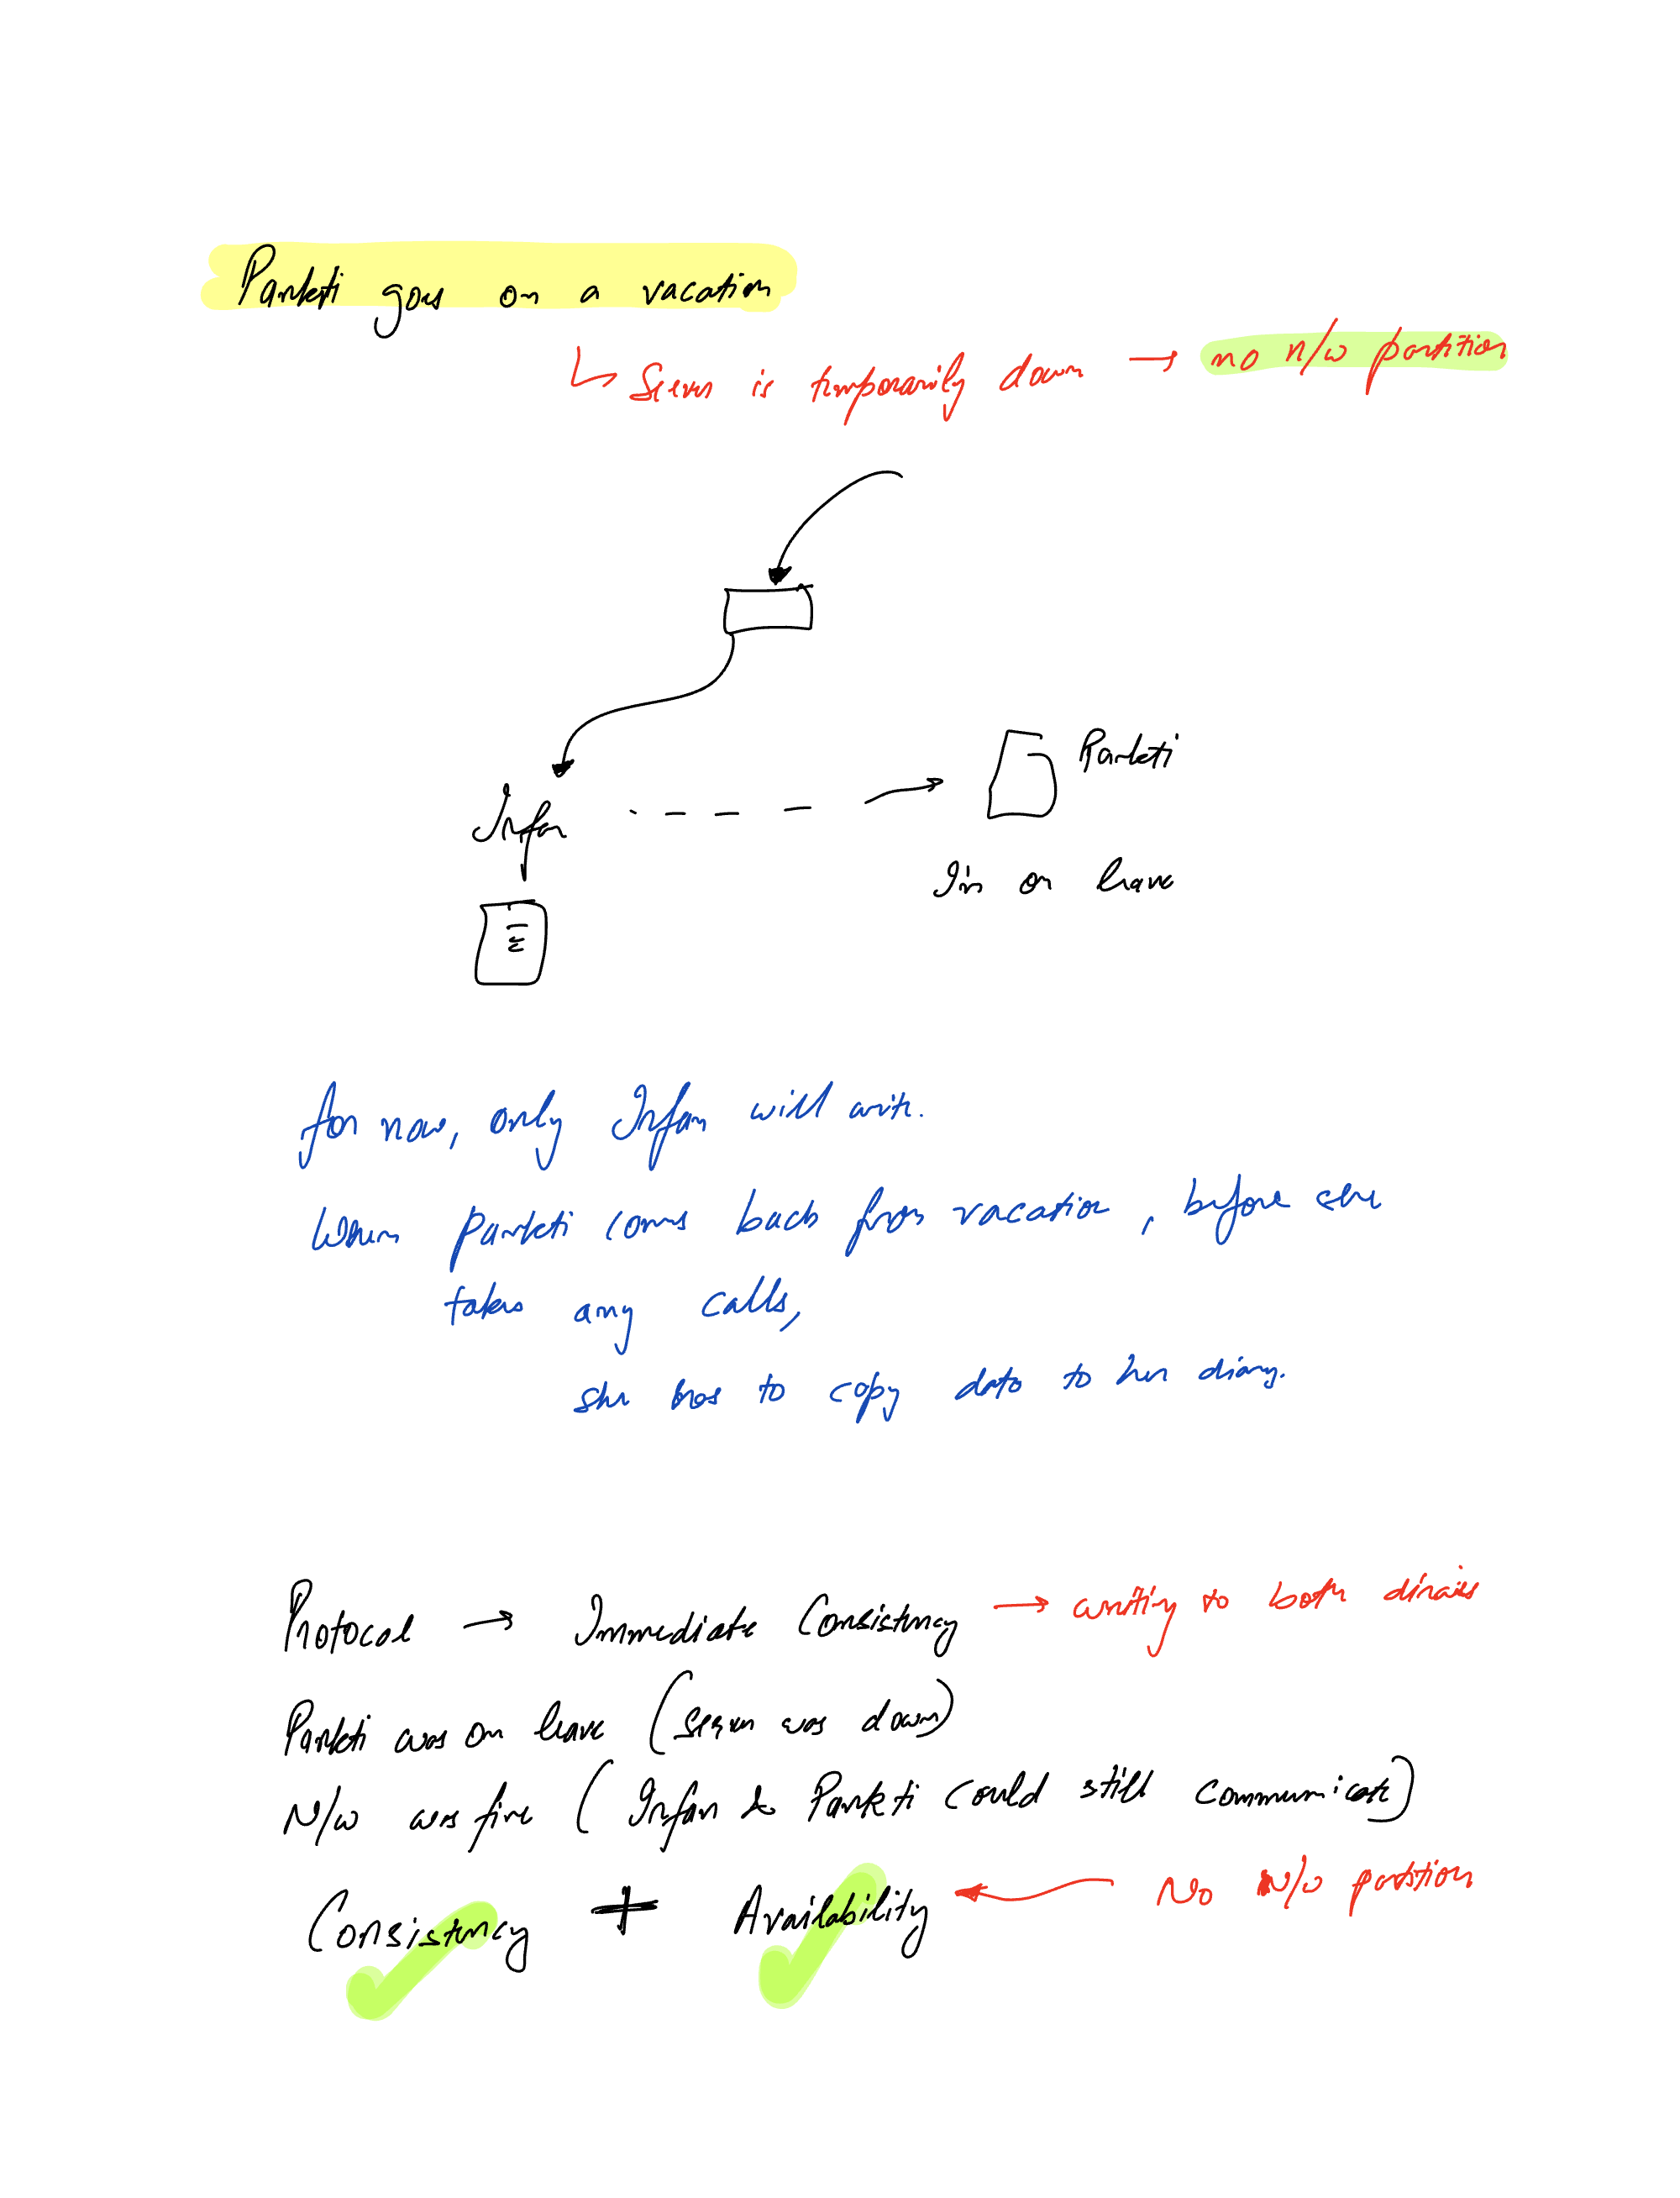 Pankti goes on a vacation
↳ Server is temporarily down → no n/w partition
Pankti
Irfan
I'm on leave
for now, only Irfan will write.
When Pankti comes back from vacation, before she
takes any calls,
she has to copy data to her diary.
Protocol → Immediate Consistency → writing to both diraies
Pankti was on leave (server was down)
N/w was fine (Irfan & Pankti could still communicate)
Consistency + Availability ← No N/w partition